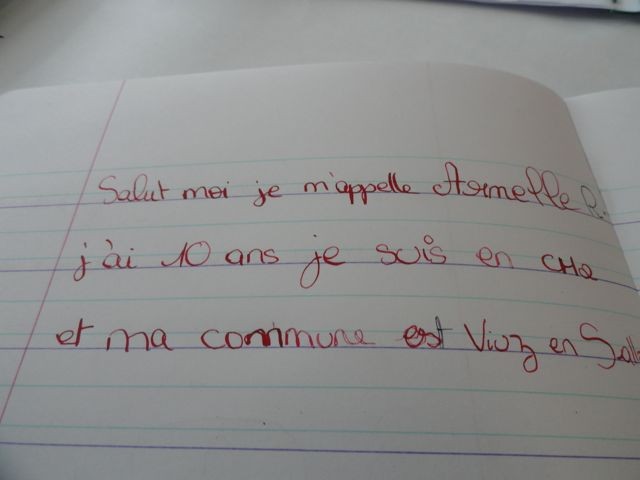 Salut moi je m'appelle Armelle R.
j'ai 10 ans je suis en CM2
et ma commune est Viuz en Salla